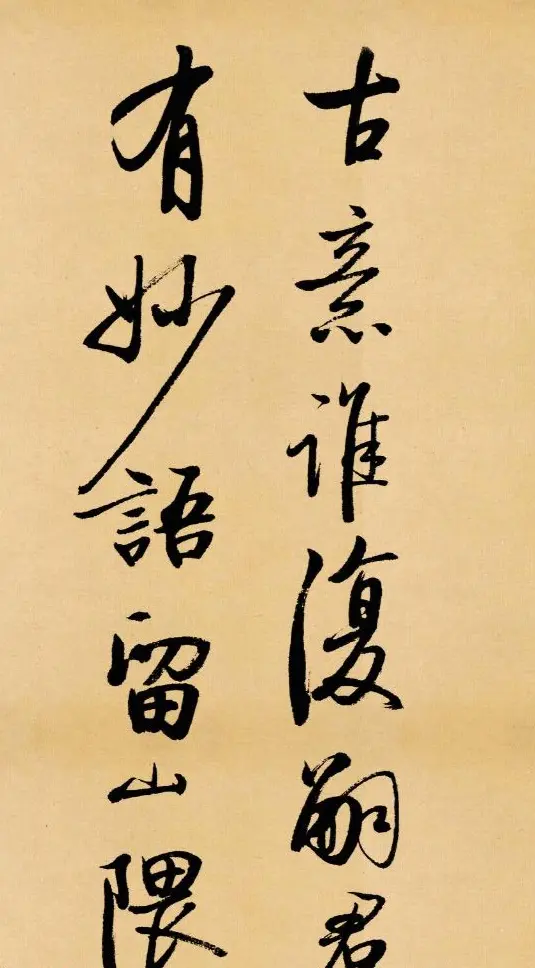 古意谁復嗣君
有妙語留山隈